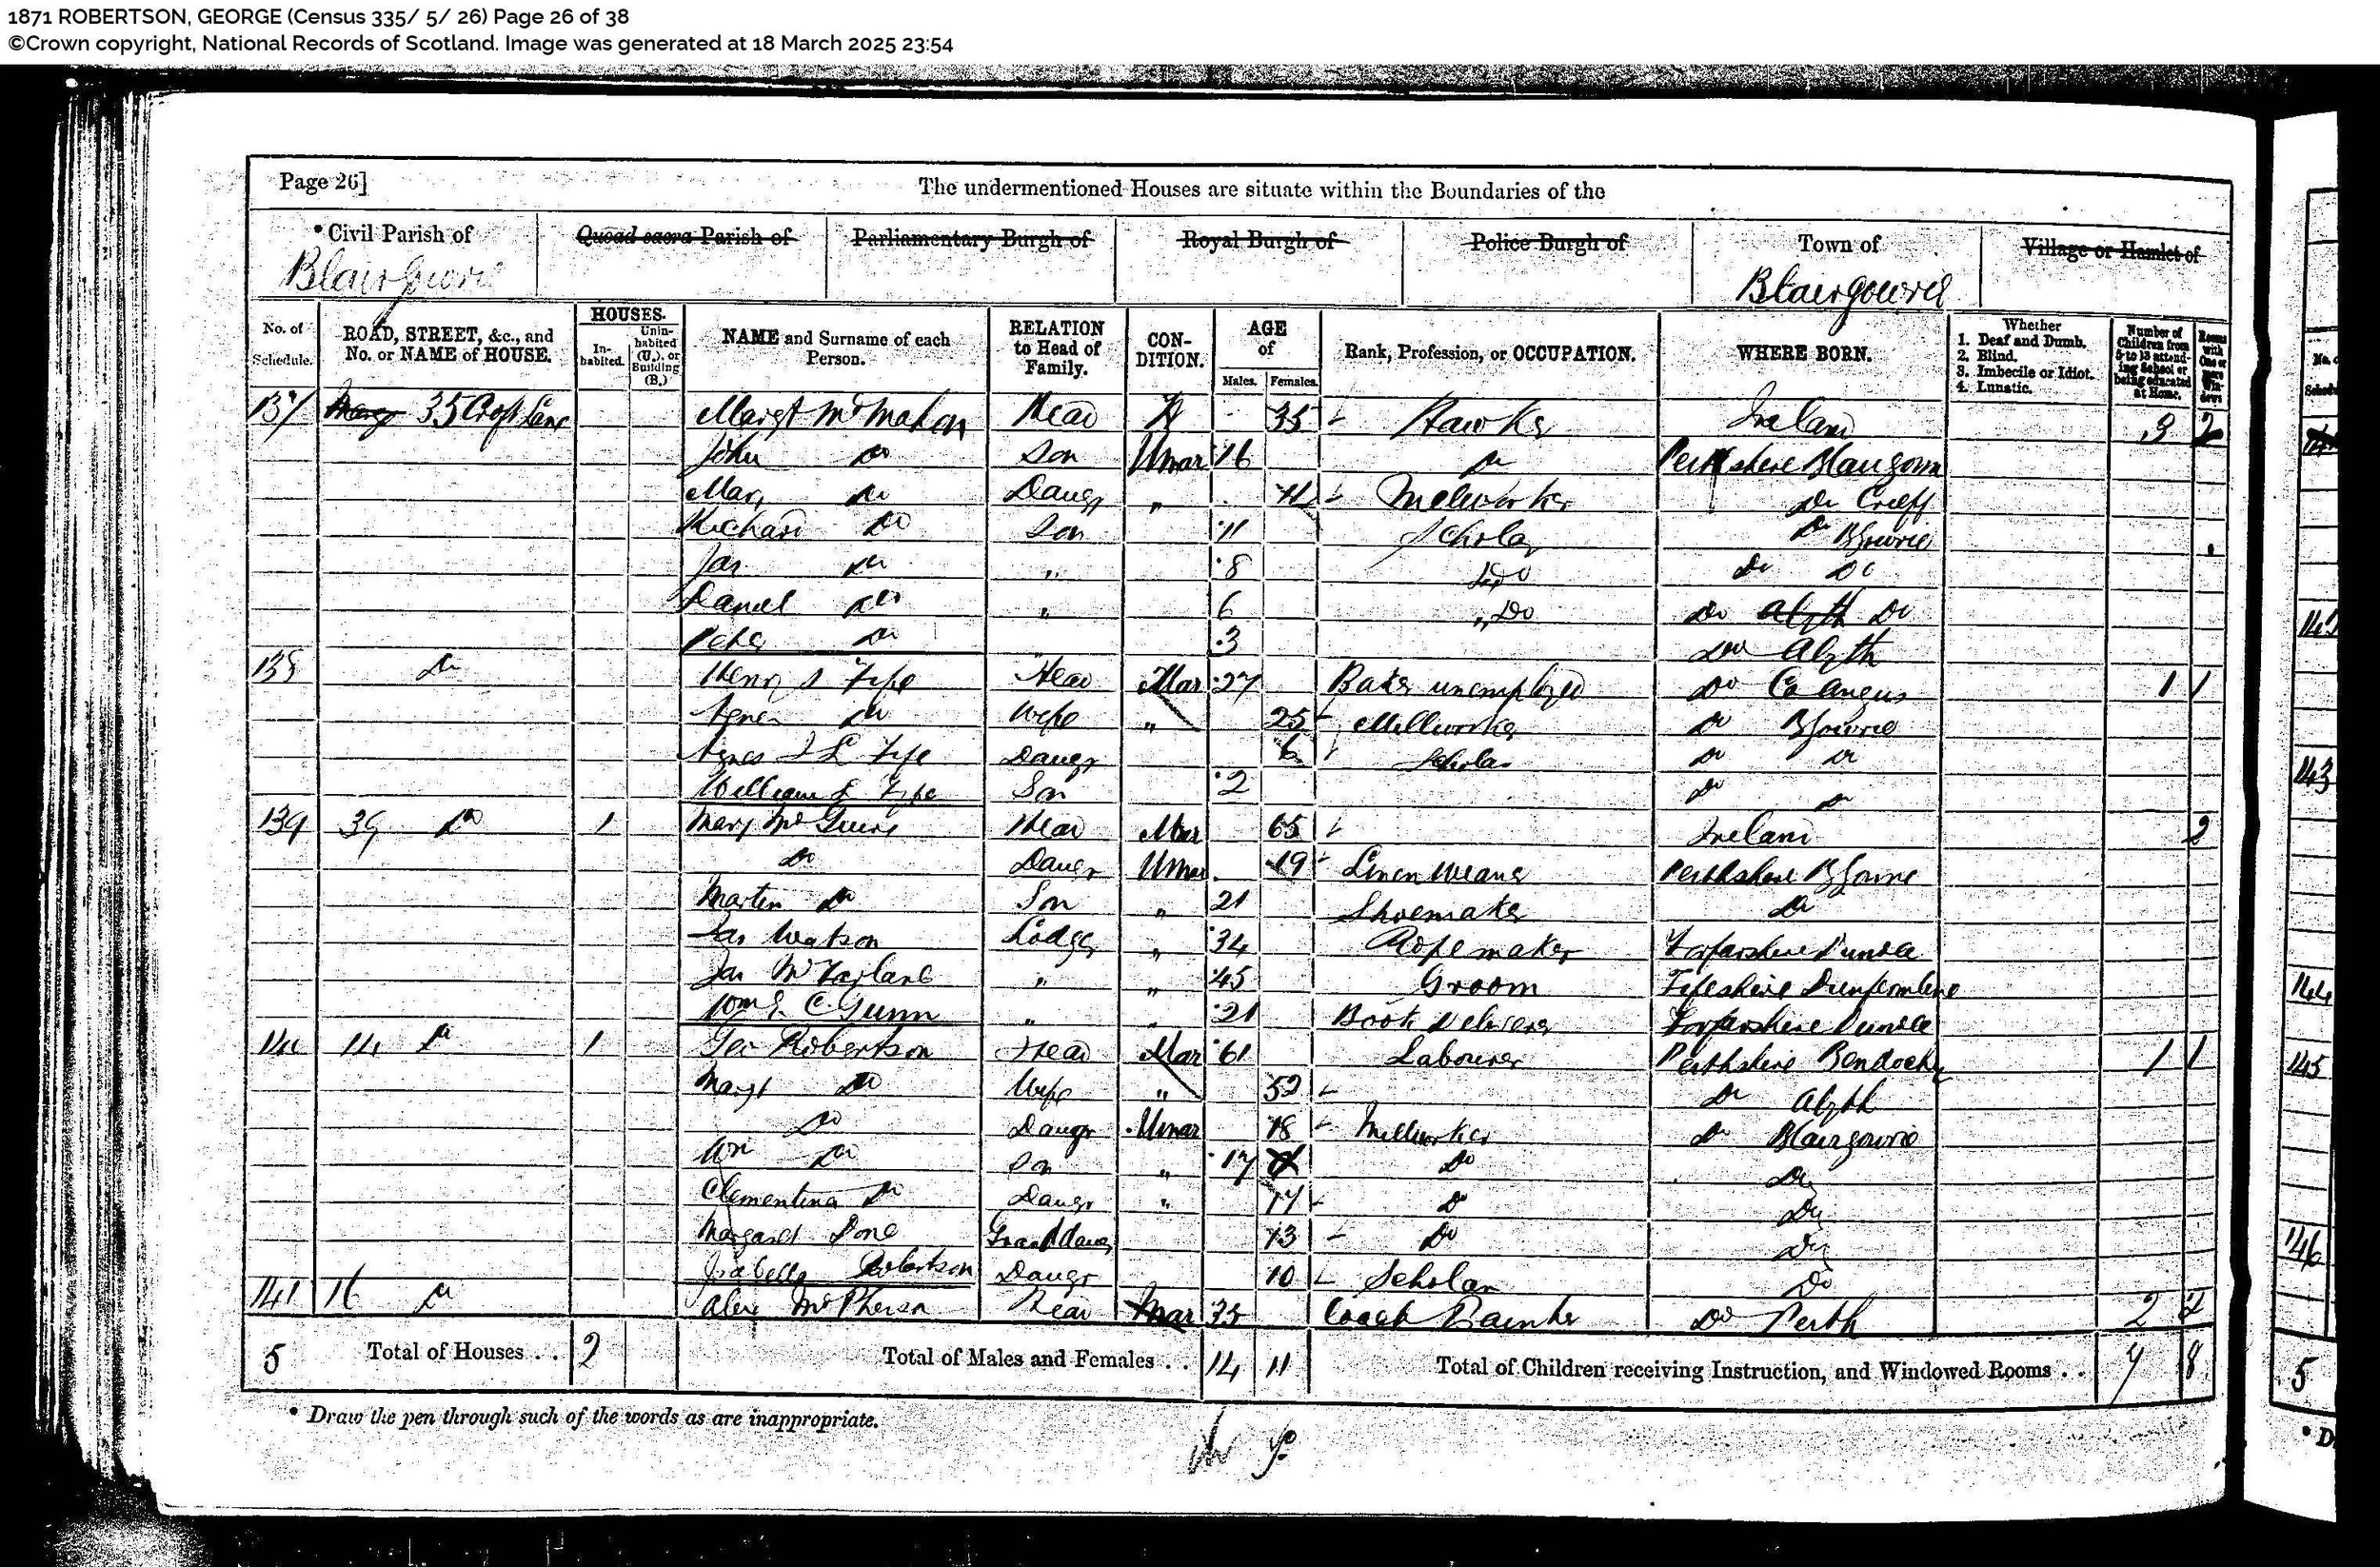 1871 ROBERTSON, GEORGE (Census 335/ 5/ 26) Page 26 of 38
©Crown copyright, National Records of Scotland. Image was generated at 18 March 2025 23:54
Page 26] The undermentioned Houses are situate within the Boundaries of the
*Civil Parish of Quoad sacra Parish of Parliamentary Burgh of Royal Burgh of Police Burgh of Town of Village or Hamlet of
Blairgowrie Blairgowrie
No. of Schedule. ROAD, STREET, &c., and No. or NAME of HOUSE. HOUSES. Inhabited. Uninhabited (U.), or Building (B.) NAME and Surname of each Person. RELATION to Head of Family. CONDITION. AGE of Males. Females. Rank, Profession, or OCCUPATION. WHERE BORN. Whether 1. Deaf and Dumb. 2. Blind. 3. Imbecile or Idiot. 4. Lunatic. Number of Children from 5 to 13 attending School or being educated at Home. Rooms with One or more Windows
137 35 Croft Lane Margt McMahon Head W 35 Hawker Ireland 3 2
John Do Son Unmar 16 Do Perthshire Blairgowrie
Mary Do Daugr " Millworker Do Crieff
Richard Do Son 11 Scholar Do BGowrie
Jas Do " 8 Do Do Do
Daniel Do " 6 " Do Do Alyth Do
Peter Do " 3 Do Alyth
138 Do Henry S Fife Head Mar 27 Baker unemployed Do Co Angus 1 1
Agnes Do Wife " 25 Millworker Do BGowrie
Agnes L Fife Daugr 6 Scholar Do Do
William L Fife Son 2 Do Do
139 39 Do 1 Mary McGuire Head Mar 65 Ireland 2
Do Daugr Unmar 19 Linen Weaver Perthshire BGowrie
Martin Do Son " 21 Shoemaker Do
Jas Watson Lodger " 34 Ropemaker Forfarshire Dundee
Jas McFarlane " " 45 Groom Fifeshire Dunfermline
C. Gunn " " 21 Book Deliverer Forfarshire Dundee
140 14 Do 1 Geo Robertson Head Mar 61 Labourer Perthshire Bendochy 1 1
Margt Do Wife " 52 Do Alyth
Do Daugr Unmar 18 Millworker Do Blairgowrie
Wm Do Son " 17 Do Do
Clementina Do Daugr " 17 Do Do
Margaret Done Grand daugr 13 Do Do
Isabella Robertson Daugr 10 Scholar Do
141 16 Do Alexr McPherson Head Mar 35 Coach Painter Do Perth 2 2
5 Total of Houses . . 2 Total of Males and Females . . 14 11 Total of Children receiving Instruction, and Windowed Rooms . . 7 8
* Draw the pen through such of the words as are inappropriate.